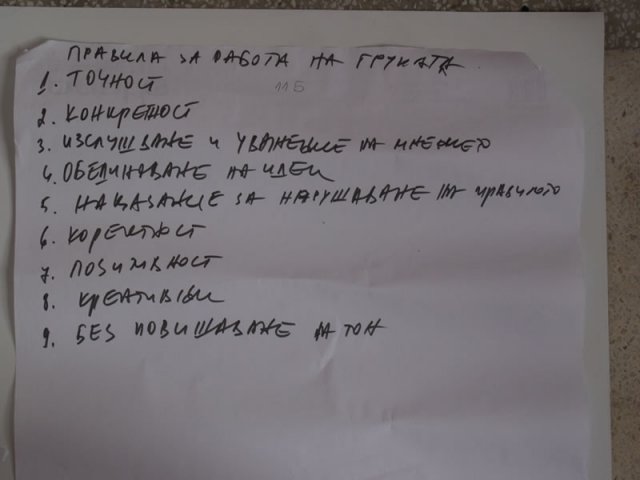 ПРАВИЛА ЗА РАБОТА НА ГРУПАТА
115
1. ТОЧНОСТ
2. КОНКРЕТНОСТ
3. ИЗСЛУШВАНЕ и УВАЖЕНИЕ НА МНЕНИЕТО
4. ОБЕДИНАВАНЕ НА ИДЕИ
5. НАКАЗАНИЕ ЗА НАРУШАВАНЕ НА правилото
6. КОРЕКТНОСТ
7. ПОЗИТИВНОСТ
8. КРЕАТИВНИ
9. БЕЗ ПОВИШАВАНЕ НА ТОН